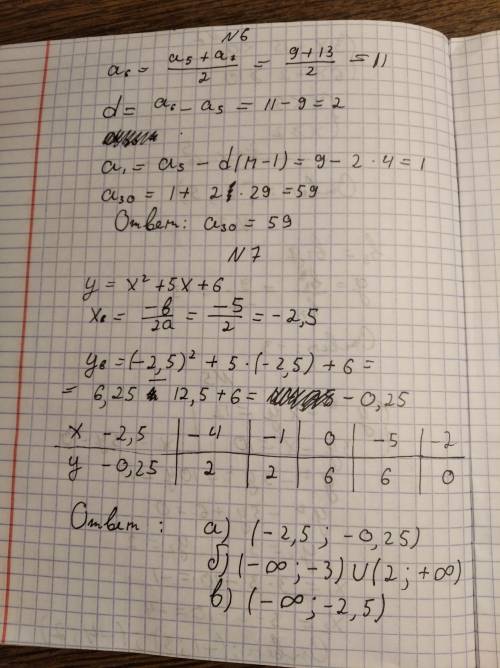 N6
a₆ = (a₅ + a₇)/2 = (9 + 13)/2 = 11
d = a₆ - a₅ = 11 - 9 = 2
a₁ = a₅ - d(n-1) = 9 - 2 · 4 = 1
a₃₀ = 1 + 2 · 29 = 59
Ответ: a₃₀ = 59
N7
y = x² + 5x + 6
xв = -в/2a = -5/2 = -2,5
yв = (-2,5)² + 5 · (-2,5) + 6 =
= 6,25 - 12,5 + 6 = - 0,25
x -2,5 -4 -1 0 -5 -2
y -0,25 2 2 6 6 0
Ответ: а) (-2,5; -0,25)
б) (-∞; -3) ∪ (2; +∞)
в) (-∞; -2,5)